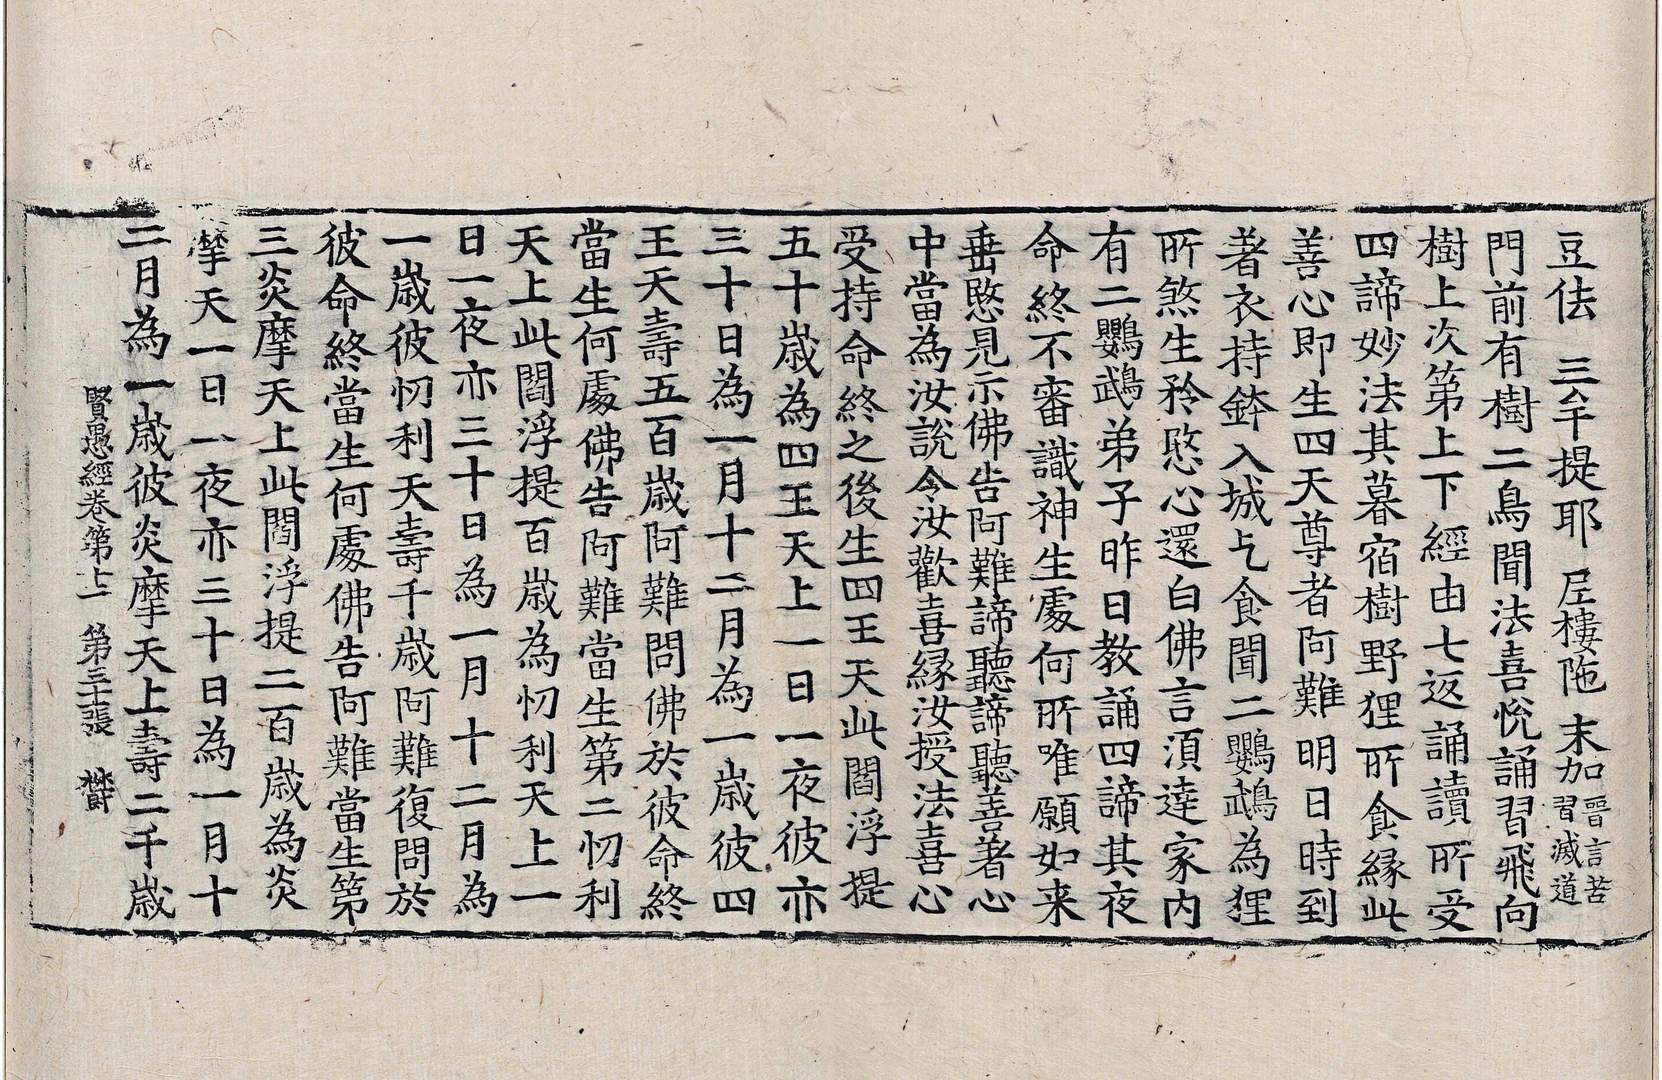 豆佉 三牟提耶 尼樓陁 末加 晉言苦習滅道
門前有樹二鳥聞法喜悅誦習飛向
樹上次第上下經由七返誦讀所受
四諦妙法其暮宿樹野狸所食縁此
善心即生四天尊者阿難明日時到
著衣持鉢入城乞食聞二鸚鵡為狸
所煞生矜愍心還白佛言湏達家内
有二鸚鵡弟子昨日教誦四諦其夜
命終不審識神生處何所唯願如来
垂愍見示佛告阿難諦聽諦聽善著心
中當為汝說令汝歡喜縁汝授法喜心
受持命終之後生四王天此閻浮提
五十歲為四王天上一日一夜彼亦
三十日為一月十二月為一歲彼四
王天壽五百歲阿難問佛於彼命終
當生何處佛告阿難當生第二忉利
天上此閻浮提百歲為忉利天上一
日一夜亦三十日為一月十二月為
一歲彼忉利天壽千歲阿難復問於
彼命終當生何處佛告阿難當生第
三炎摩天上此閻浮提二百歲為炎
摩天一日一夜亦三十日為一月十
二月為一歲彼炎摩天上壽二千歲
賢愚經卷第十二 第三十張 欝